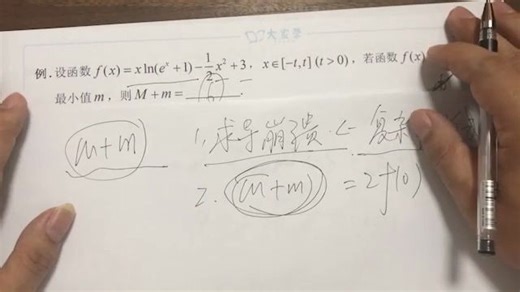 例.设函数 f(x)=x ln(eˣ+1)-\frac{1}{2}x²+3, x∈[-t,t](t>0), 若函数 f(x)
最小值 m, 则 M+m=
m+m 1,求导崩溃 ← 复杂
2. (m+m) =2f(0)